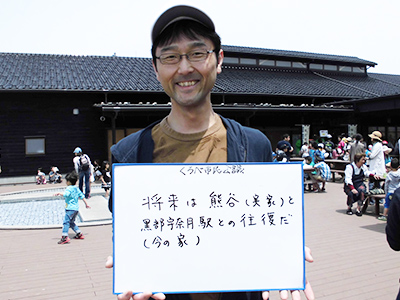 くろべ市民公論
将来は 熊谷(実家)と
黒部宇奈月駅との往復だ
(今の家)